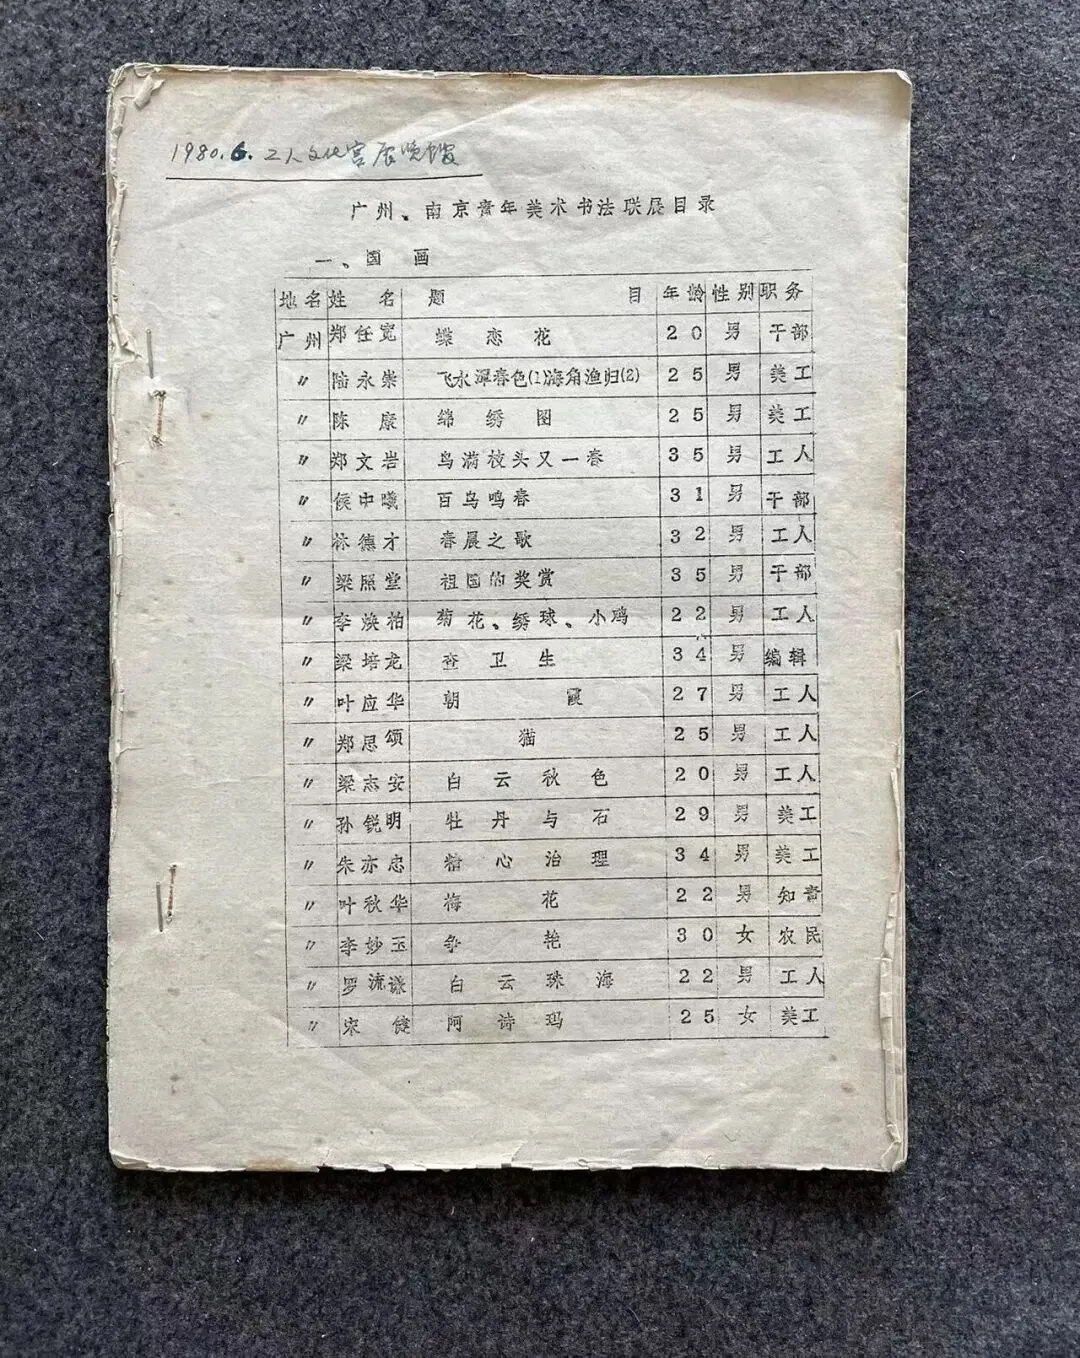 1980.6. 工人文化宫展览馆
广州、南京青年美术书法联展目录
一、国 画
地名 姓 名 题 目 年龄 性别 职务
广州 郑任宽 蝶恋花 20 男 干部
〃 陆永崇 飞水潭春色(1)海角渔归(2) 25 男 美工
〃 陈 康 绵绣图 25 男 美工
〃 郑文岩 鸟满枝头又一春 35 男 工人
〃 侯中曦 百鸟鸣春 31 男 干部
〃 林德才 春展之歌 32 男 工人
〃 梁照堂 祖国的奖赏 35 男 干部
〃 李焕柏 菊花、绣球、小鸡 22 男 工人
〃 梁培龙 查卫生 34 男 编辑
〃 叶应华 朝 霞 27 男 工人
〃 郑思颂 猫 25 男 工人
〃 梁志安 白云秋色 20 男 工人
〃 孙锐明 牡丹与石 29 男 美工
〃 朱亦忠 精心治理 34 男 美工
〃 叶秋华 梅 花 22 男 知青
〃 李妙玉 争 艳 30 女 农民
〃 罗流谦 白云珠海 22 男 工人
〃 宋 健 阿诗玛 25 女 美工